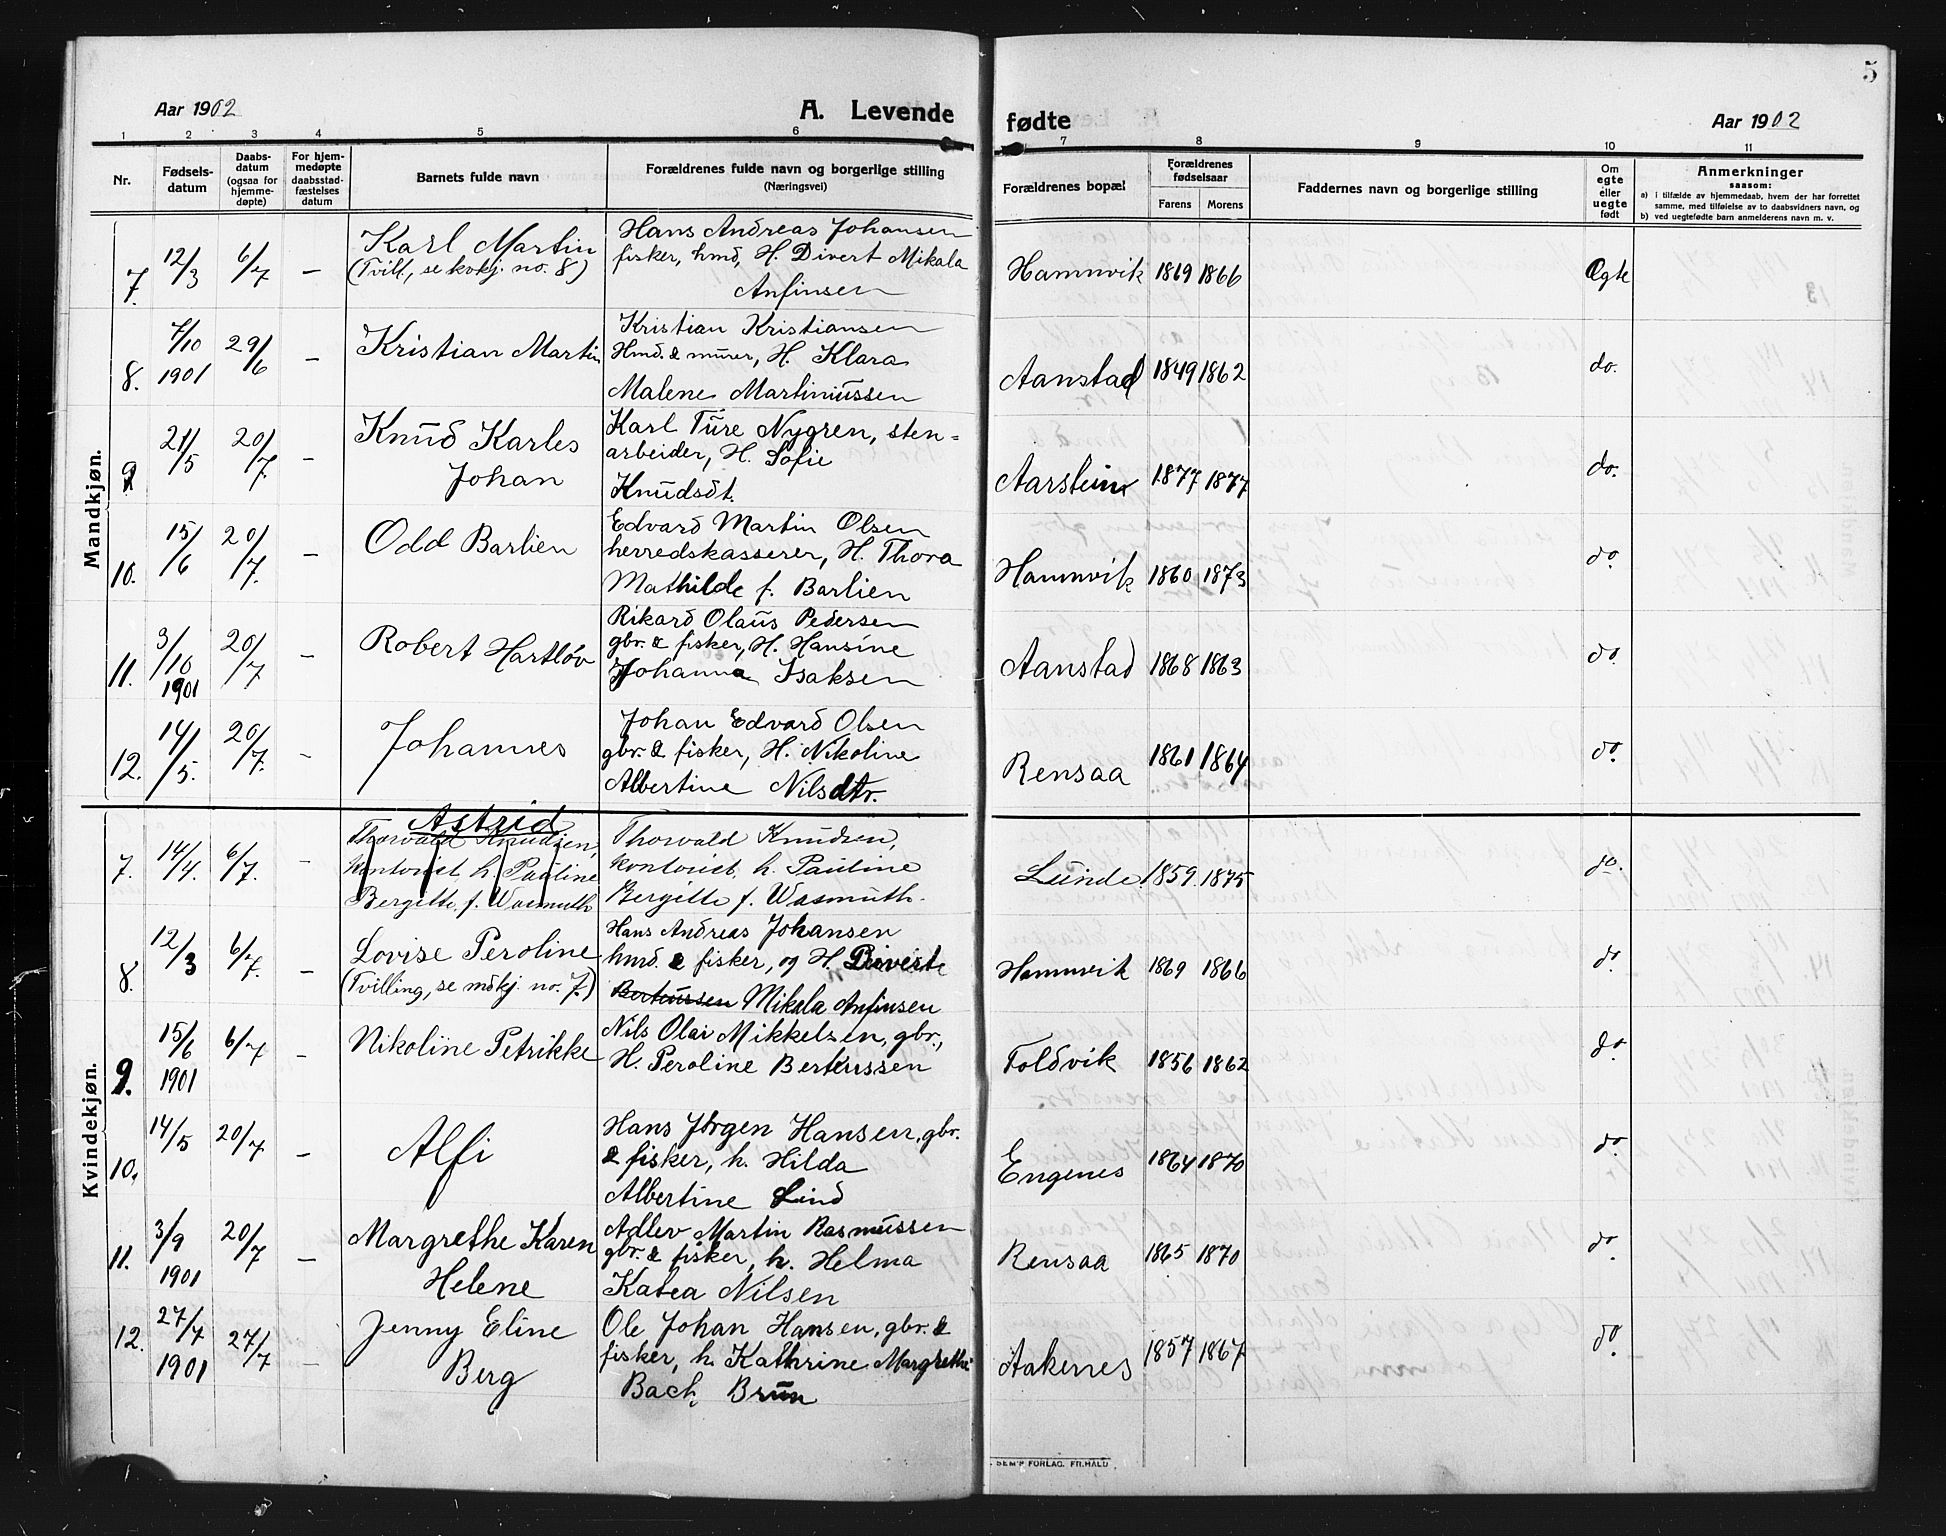 5
Aar 1902
A. Levende
fødte
Aar 1902
1 2 3 4 5 6 7 8 9 10 11
Nr.
Fødsels-
datum
Daabs-
datum
(ogsaa for
hjemme-
døpte)
For hjem-
medøpte
daabsstad-
fæstelses
datum
Barnets fulde navn
Forældrenes fulde navn og borgerlige stilling
(Næringsvei)
Forældrenes bopæl
Forældrenes
fødselsaar
Farens Morens
Faddernes navn og borgerlige stilling
Om
egte
eller
uegte
født
Anmerkninger
saasom:
a) i tilfælde av hjemmedaab, hvem der har forrettet
samme, med tilføielse av to daabsvidners navn, og
b) ved uegtefødte barn anmelderens navn m. v.
Mandkjøn.
7. 12/3 6/7 — Karl Martin
(Tvill, se kvkj. no. 8)
Hans Andreas Johansen
fisker, hmd, H. Divert Mikala
Anfinsen
Hamnvik 1869 1866 Egte
8. 7/10 1901 29/6 — Kristian Martin
Kristian Kristiansen
Hmd. & murer, H. Klara
Malene Martinussen
Aanstad 1849 1862 do.
9 21/5 20/7. — Knud Karles
Johan
Karl Ture Nygren, sten-
arbeider, H. Sofie
Knudsdt.
Aarstein 1877 1877 do.
10. 15/6 20/7. — Odd Barlien
Edvard Martin Olsen
herredskasserer, H. Thora
Mathilde f. Barlien
Hamnvik 1860 1873 do.
11. 3/10 1901 20/7. — Robert Hartløv
Rikard Olaus Pedersen
gbr. & fisker, H. Hansine
Johanna Isaksen
Aanstad 1868 1863 do.
12. 14/5. 20/7. — Johannes
Johan Edvard Olsen
gbr. & fisker, H. Nikoline
Albertine Nilsdtr.
Rensaa 1861 1864 do.
Kvindekjøn.
7. 14/4. 6/7. — Astrid
Thorvald Knudsen,
kontorist h. Pauline
Bergitte f. Wasmuth
Thorvald Knudsen,
kontorist, h. Pauline
Bergitte f. Wasmuth.
Lunde 1859 1875 do.
8. 12/3 6/7. — Lovise Peroline
(Tvilling, se mdkj. no. 7.)
Hans Andreas Johansen
hmd. & fisker, og H.
Berteussen Mikala Anfinsen
Hamnvik 1869 1866 do.
9. 15/6 1901 6/7 — Nikoline Petrikke
Nils Olai Mikkelsen, gbr.,
H. Peroline Berteussen
Foldvik 1856 1862 do.
10. 14/5 20/7 — Alfi
Hans Jørgen Hansen, gbr.
& fisker, h. Hilda
Albertine Lind
Engenes 1864 1870 do.
11. 3/9 1901 20/7 — Margrethe Karen
Helene
Adlev Martin Rasmussen
gbr. & fisker, h. Helma
Katea Nilsen
Rensaa 1865 1870 do.
12. 27/7 1901 27/7 — Jenny Eline
Berg
Ole Johan Hansen, gbr. &
fisker, h. Kathrine Margrethe
Bach Brun
Aakernes 1857 1867 do.
SEM'S FORLAG. FR.HALD